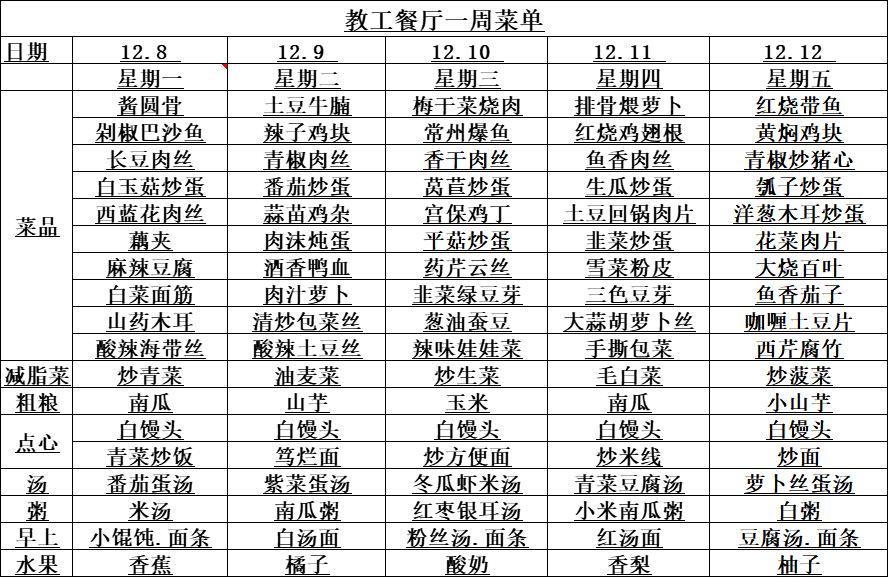 教工餐厅一周菜单
日期 12.8 12.9 12.10 12.11 12.12
星期一 星期二 星期三 星期四 星期五
菜品
酱圆骨 土豆牛腩 梅干菜烧肉 排骨煨萝卜 红烧带鱼
剁椒巴沙鱼 辣子鸡块 常州爆鱼 红烧鸡翅根 黄焖鸡块
长豆肉丝 青椒肉丝 香干肉丝 鱼香肉丝 青椒炒猪心
白玉菇炒蛋 番茄炒蛋 莴苣炒蛋 生瓜炒蛋 瓠子炒蛋
西蓝花肉丝 蒜苗鸡杂 宫保鸡丁 土豆回锅肉片 洋葱木耳炒蛋
藕夹 肉沫炖蛋 平菇炒蛋 韭菜炒蛋 花菜肉片
麻辣豆腐 酒香鸭血 药芹云丝 雪菜粉皮 大烧百叶
白菜面筋 肉汁萝卜 韭菜绿豆芽 三色豆芽 鱼香茄子
山药木耳 清炒包菜丝 葱油蚕豆 大蒜胡萝卜丝 咖喱土豆片
酸辣海带丝 酸辣土豆丝 辣味娃娃菜 手撕包菜 西芹腐竹
减脂菜 炒青菜 油麦菜 炒生菜 毛白菜 炒菠菜
粗粮 南瓜 山芋 玉米 南瓜 小山芋
点心
白馒头 白馒头 白馒头 白馒头 白馒头
青菜炒饭 笃烂面 炒方便面 炒米线 炒面
汤 番茄蛋汤 紫菜蛋汤 冬瓜虾米汤 青菜豆腐汤 萝卜丝蛋汤
粥 米汤 南瓜粥 红枣银耳汤 小米南瓜粥 白粥
早上 小馄饨.面条 白汤面 粉丝汤.面条 红汤面 豆腐汤.面条
水果 香蕉 橘子 酸奶 香梨 柚子